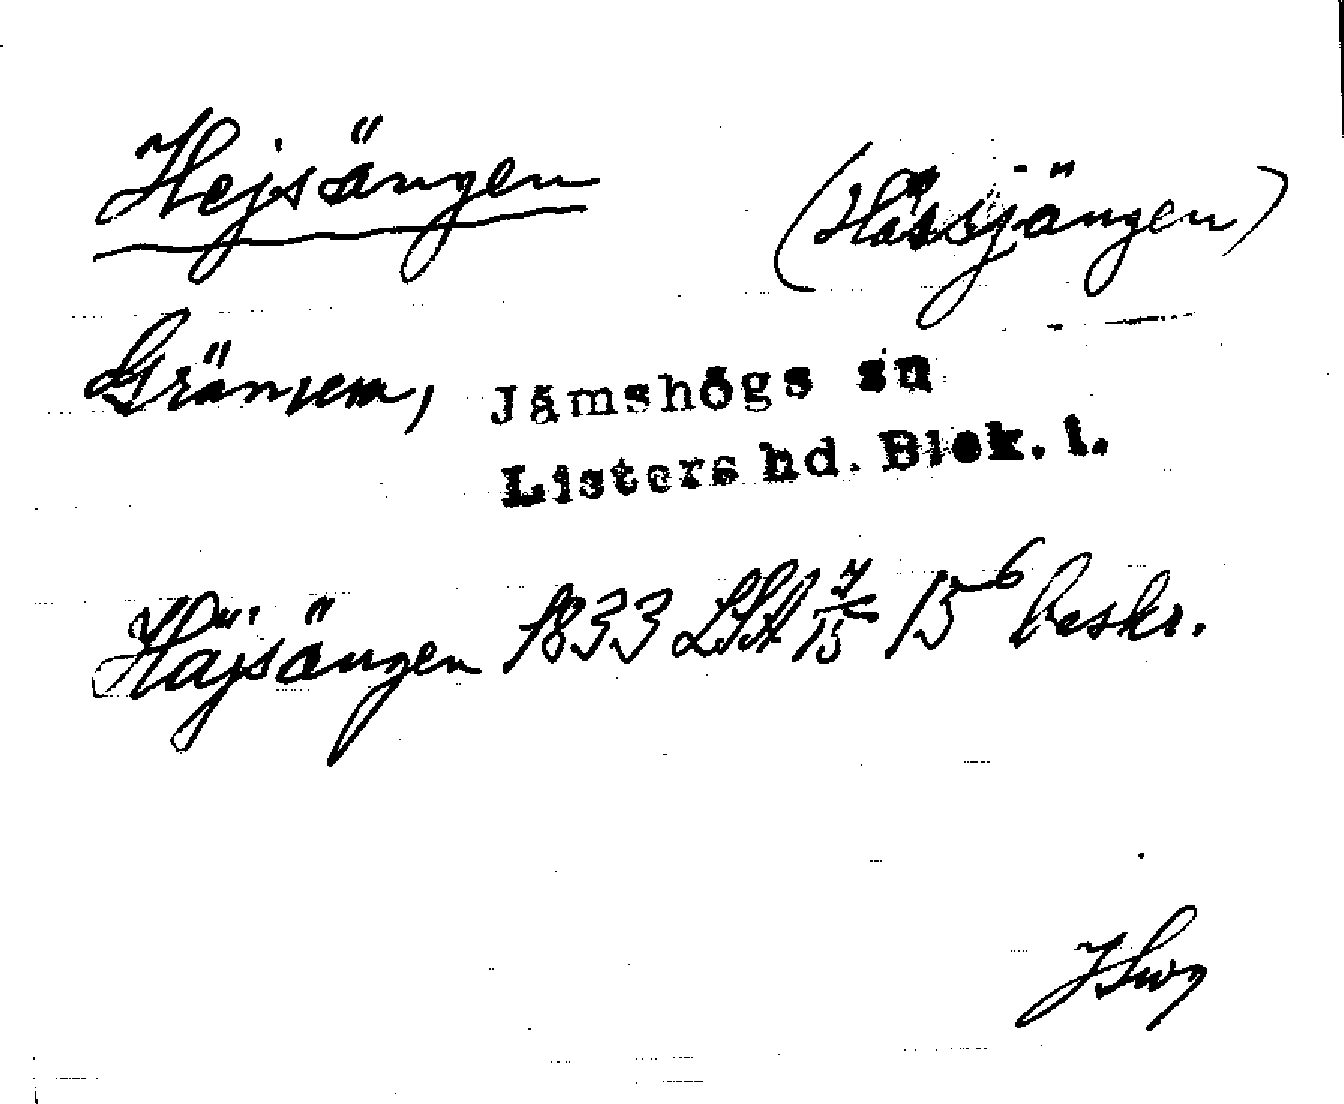 Hejsängen (Hässjängen)
Gränsen, Jämshögs sn
Listers hd. Blek. l.
Häjsängen 1833 LSA 7/15 15⁶ beskr.